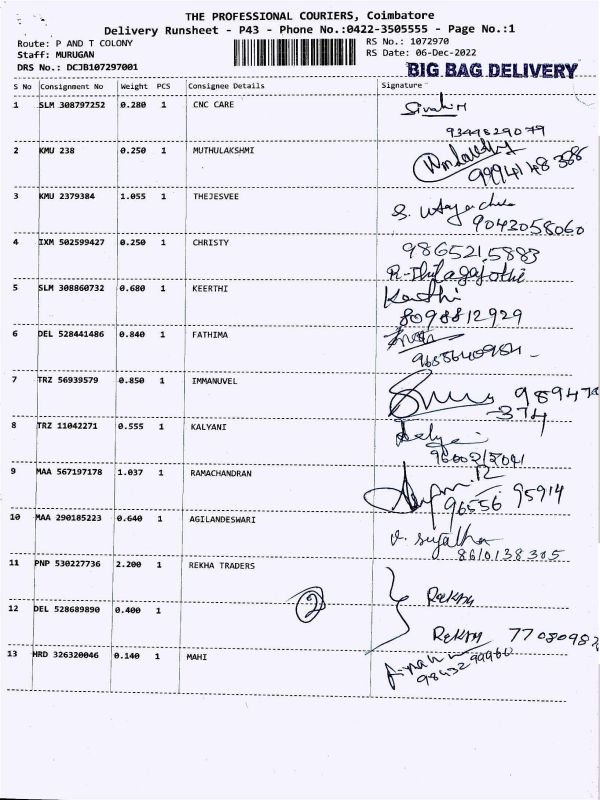 THE PROFESSIONAL COURIERS, Coimbatore
Delivery Runsheet - P43 - Phone No.:0422-3505555 - Page No.:1
Route: P AND T COLONY
Staff: MURUGAN
DRS No.: DCJB107297001
RS No.: 1072970
RS Date: 06-Dec-2022
BIG BAG DELIVERY
S No Consignment No Weight PCS Consignee Details Signature
1 SLM 308797252 0.280 1 CNC CARE
9344829079
2 KMU 238 0.250 1 MUTHULAKSHMI
99941 48 388
3 KMU 2379384 1.055 1 THEJESVEE
9043058060
4 IXM 502599427 0.250 1 CHRISTY
986521.5883
R-Thilagajothi
5 SLM 308860732 0.680 1 KEERTHI
Keerthi
8098812929
6 DEL 528441486 0.840 1 FATHIMA
7 TRZ 56939579 0.850 1 IMMANUVEL
989470
374
8 TRZ 11042271 0.555 1 KALYANI
9600212041
9 MAA 567197178 1.037 1 RAMACHANDRAN
96556 95914
10 MAA 290185223 0.640 1 AGILANDESWARI
v. sujatha
8610138305
11 PNP 530227736 2.200 1 REKHA TRADERS
2
REKHA
12 DEL 528689890 0.400 1
REKHA 7708098
13 HRD 326320046 0.140 1 MAHI
98432 99960